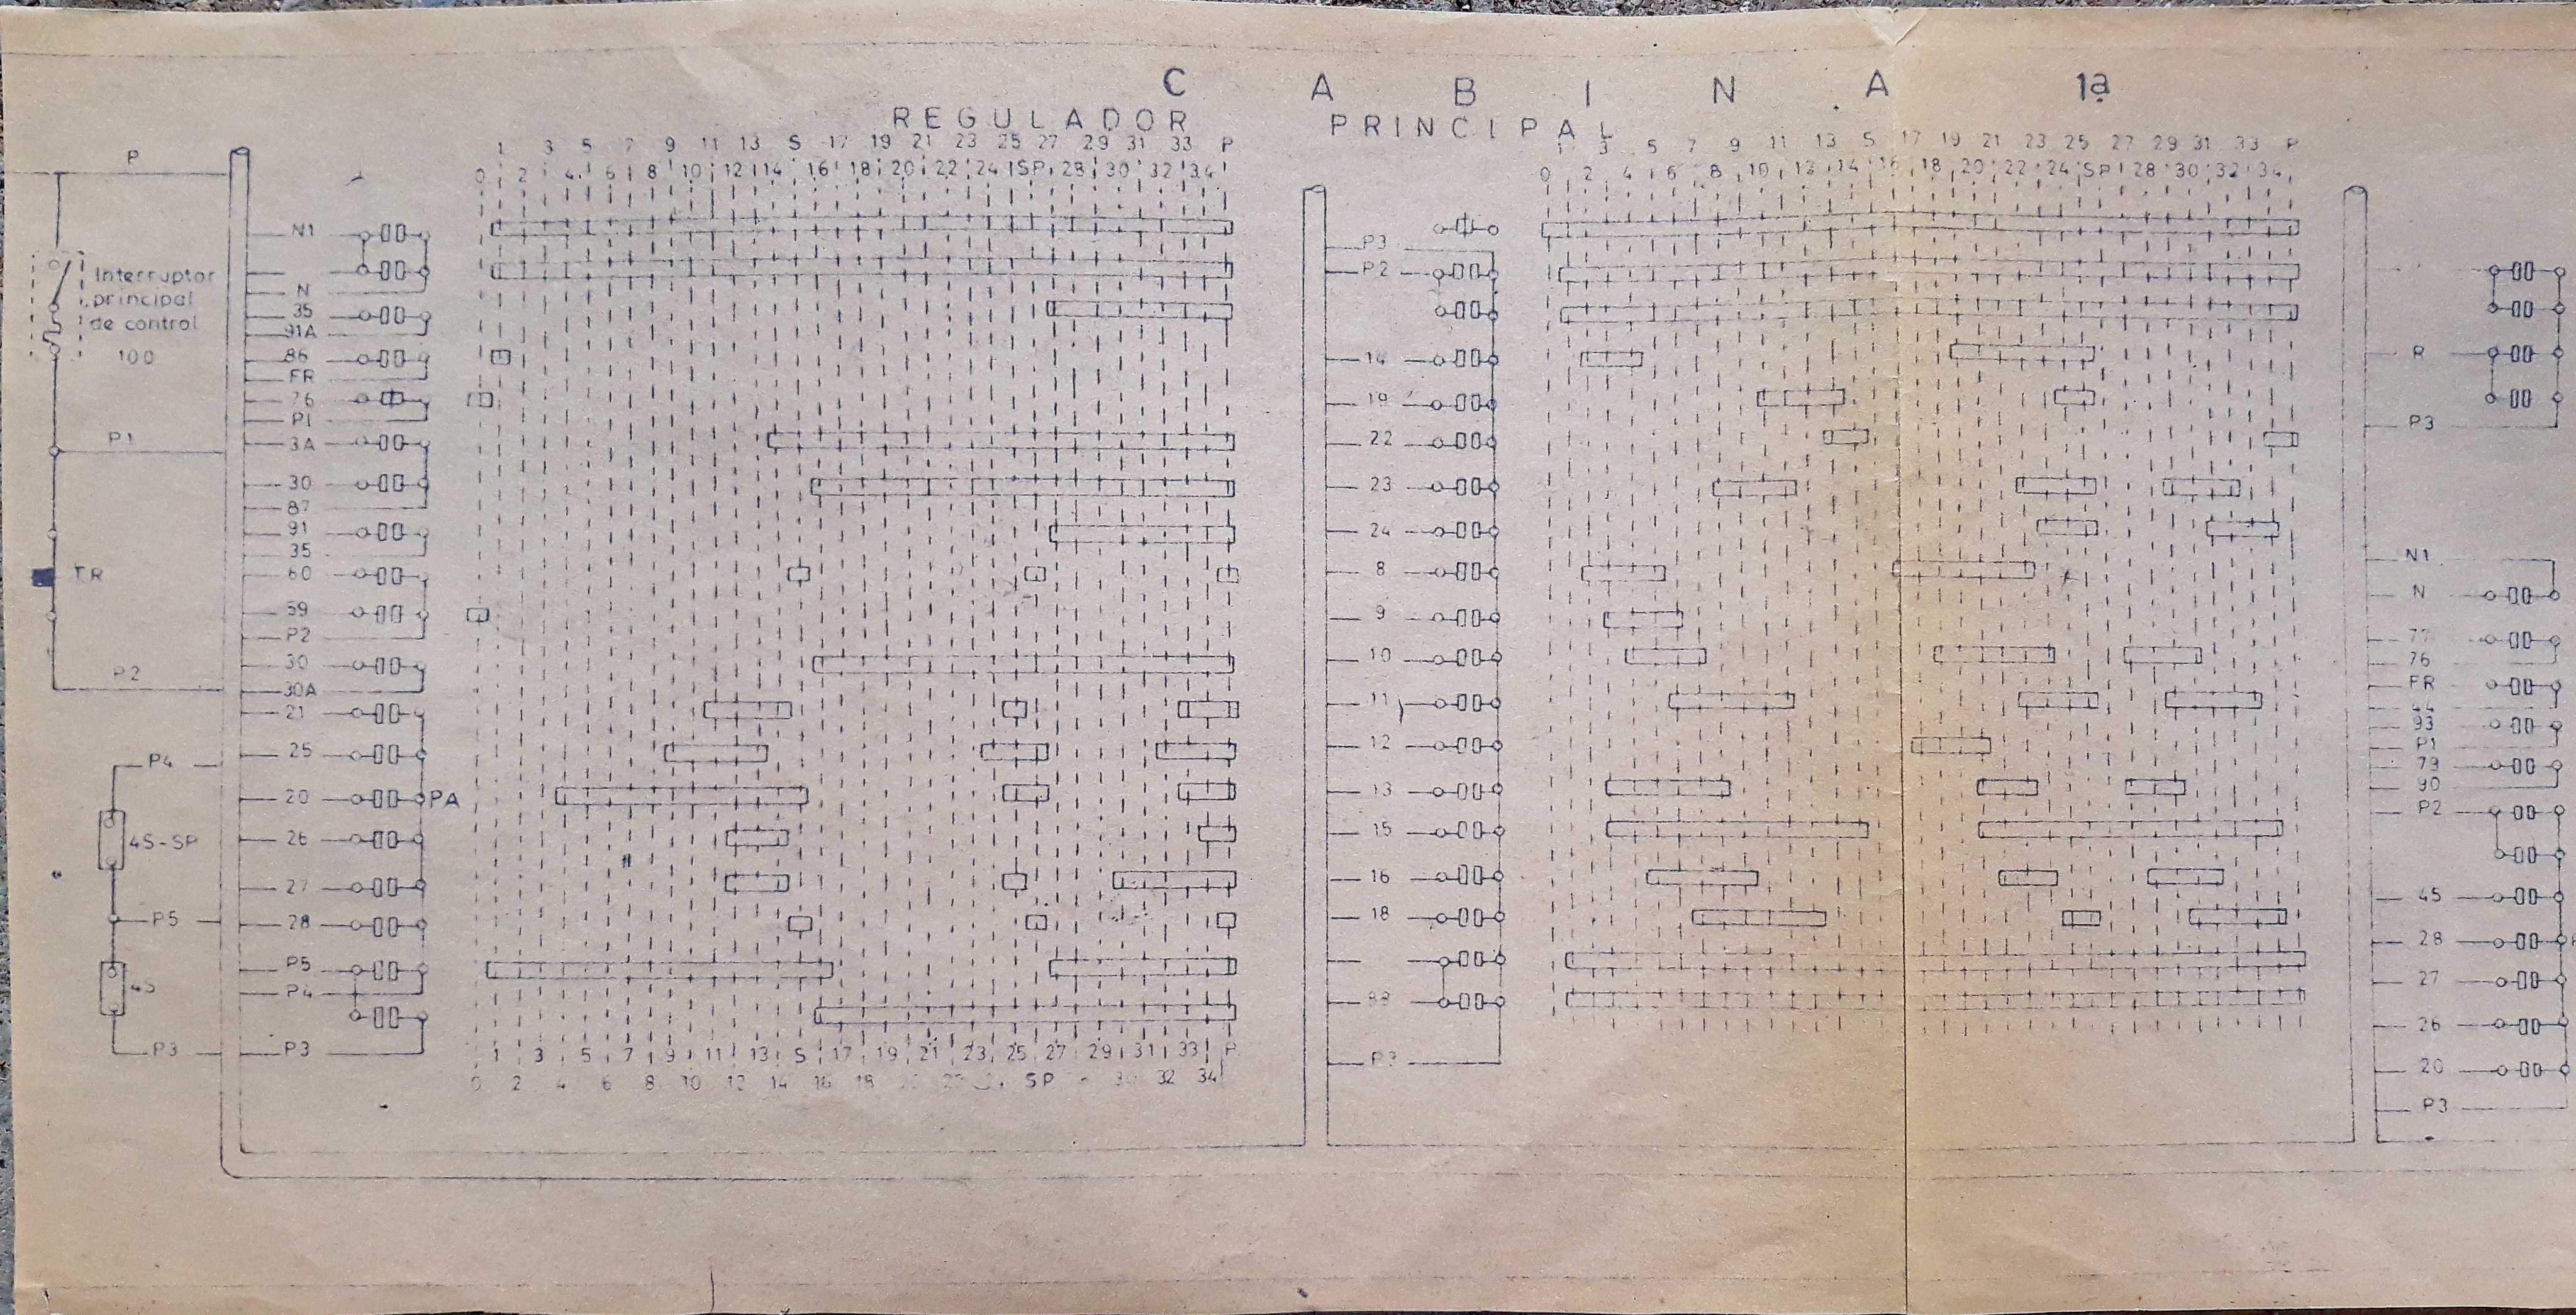 C A B I N A 1ª
REGULADOR PRINCIPAL
1 3 5 7 9 11 13 S 17 19 21 23 25 27 29 31 33 P
0 2 4 6 8 10 12 14 16 18 20 22 24 SP 28 30 32 34
1 3 5 7 9 11 13 S 17 19 21 23 25 27 29 31 33 P
0 2 4 6 8 10 12 14 16 18 20 22 24 SP 28 30 32 34
P
Interruptor
principal
de control
100
P1
TR
P2
P4
4S-SP
P5
4S
P3
N1
N
35
91A
86
FR
76
P1
3A
30
87
91
35
60
59
P2
30
30A
21
25
20
PA
26
27
28
P5
P4
P3
1 3 5 7 9 11 13 S 17 19 21 23 25 27 29 31 33 P
0 2 4 6 8 10 12 14 16 18 SP 32 34
P3
P2
14
19
22
23
24
8
9
10
11
12
13
15
16
18
P3
R
P3
N1
N
77
76
FR
93
P1
73
90
P2
45
28
27
26
20
P3